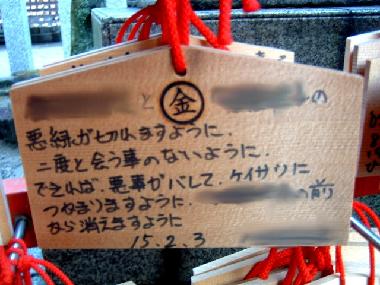 と 金 の
悪縁が切れますように.
二度と会う事のないように.
できれば、悪事がバレて、ケイサツに
つかまりますように. の前
から消えますように
15.2.3